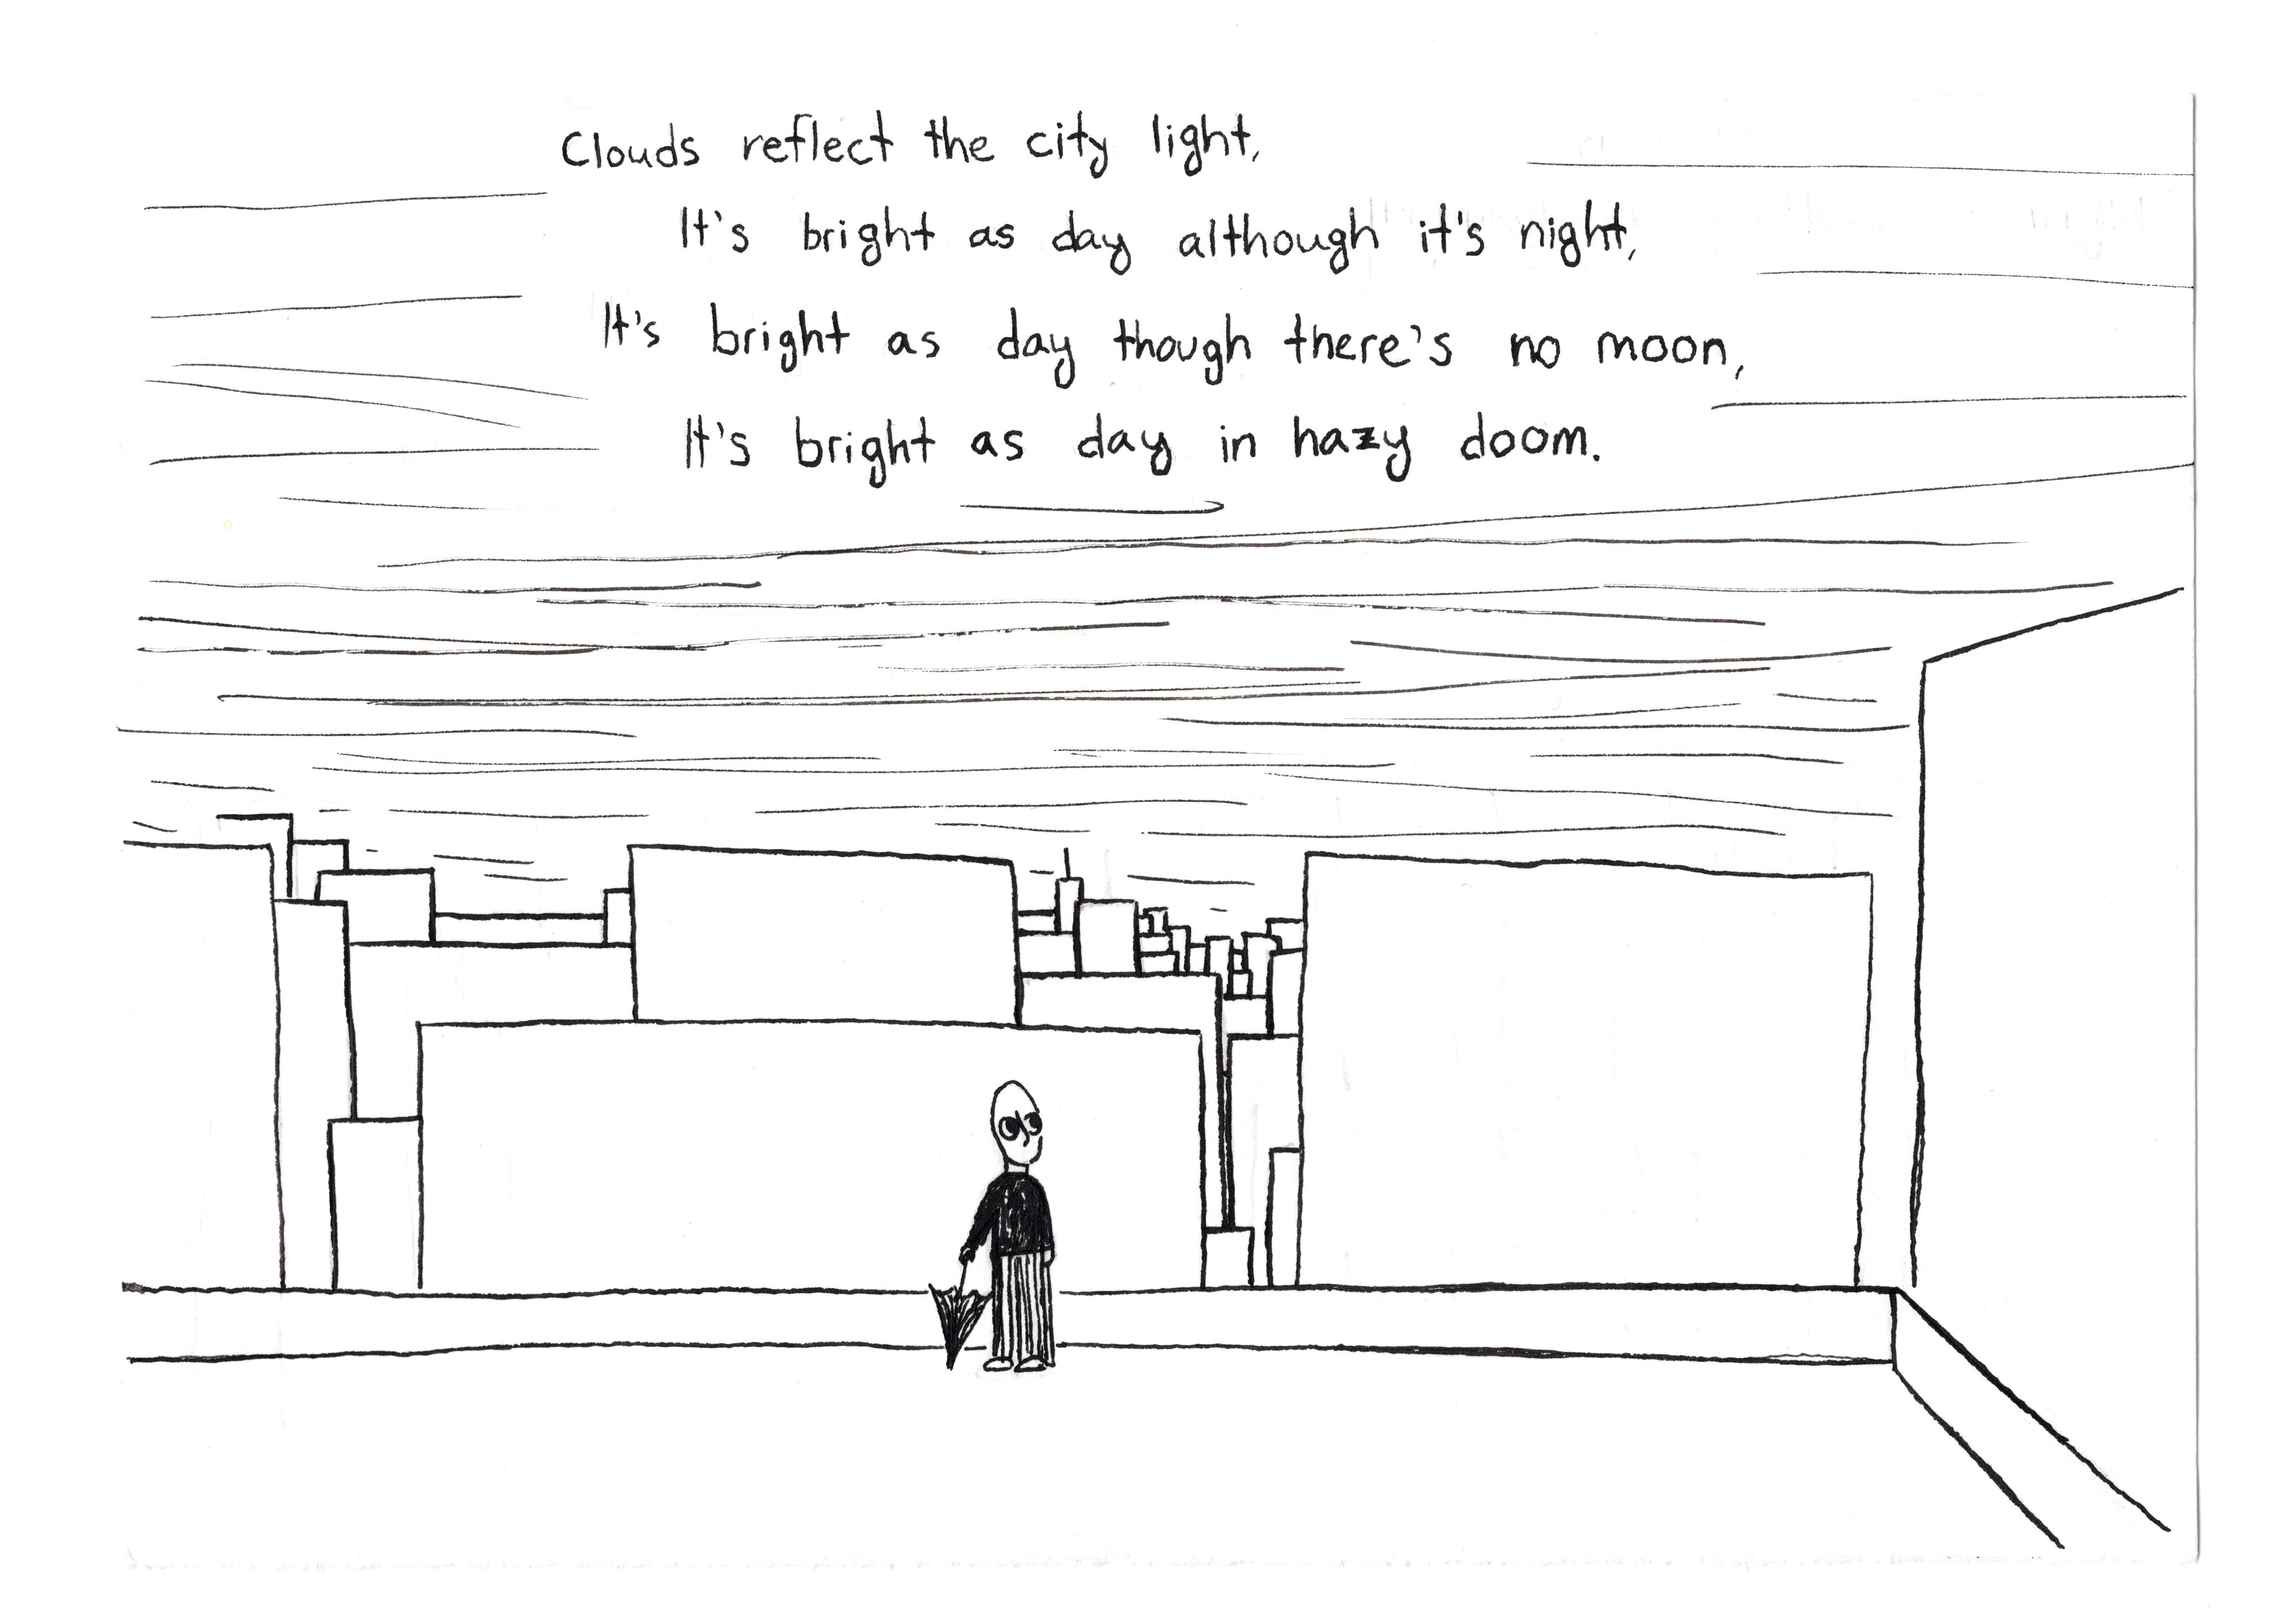 Clouds reflect the city light,
It's bright as day although it's night,
It's bright as day though there's no moon,
It's bright as day in hazy doom.